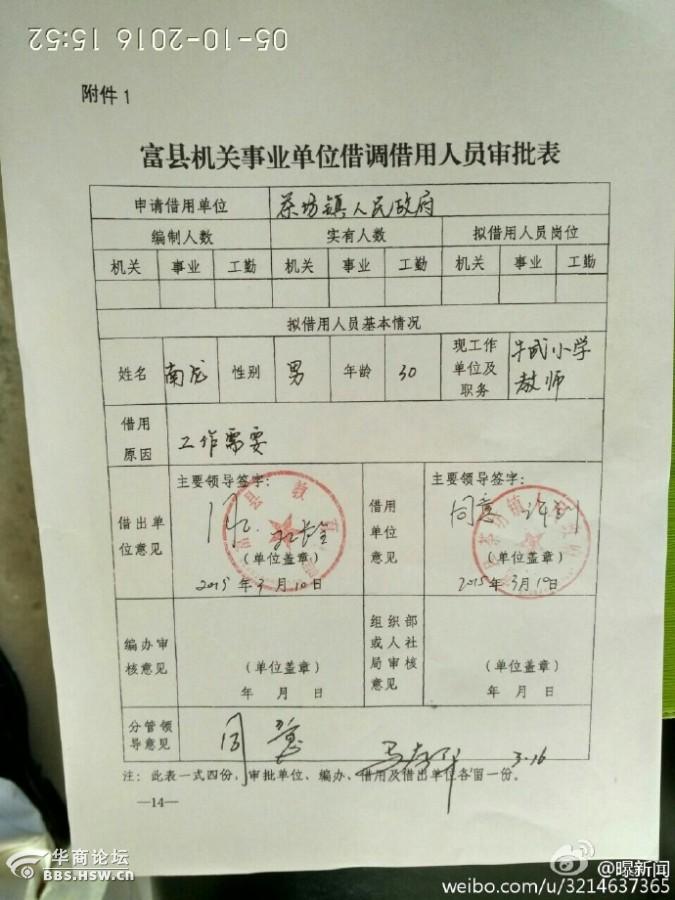 05-10-2016 15:52
附件1
富县机关事业单位借调借用人员审批表
申请借用单位 茶坊镇人民政府
编制人数 实有人数 拟借用人员岗位
机关 事业 工勤 机关 事业 工勤 机关 事业 工勤
拟借用人员基本情况
姓名 南龙 性别 男 年龄 30 现工作单位及职务 牛武小学教师
借用原因 工作需要
借出单位意见 主要领导签字: 同意 (单位盖章) 2015年3月10日
借用单位意见 主要领导签字: 同意 (单位盖章) 2015年3月19日
编办审核意见 (单位盖章) 年 月 日
组织部或人社局审核意见 (单位盖章) 年 月 日
分管领导意见 同意 3.16
注:此表一式四份,审批单位、编办、借用及借出单位各留一份。
—14—
华商论坛
BBS.HSW.CN
@曝新闻
weibo.com/u/3214637365